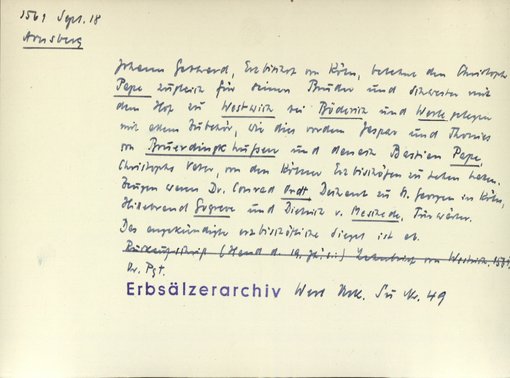 1561 Sept. 18
Arnsberg
Johann Gebhard, Erzbischof von Köln, belehnt den Christoph
Pape zugleich für seinen Bruder und Schwester mit
dem Hof zu Westwich bei Büderich und Werl gelegen
mit allem Zubehör, wie dies vordem Jaspar und Thonies
von Bruerdingkhussen und danach Bastian Pape,
Christophs Vater, von den Kölner Erzbischöfen zu Lehen hatten.
Zeugen waren Dr. Conrad Ordt, Dechant zu St. Georgen in Köln,
Hildebrand Gogreve und Dietrich v. Meschede, Türwärter.
Das angekündigte erzbischöfliche Siegel ist ab.
Rückaufschrift (Hand d. 19. Jh.:) Lehnbrief von Westwich 1561
Or. Pgt.
Erbsälzerarchiv Werl Urk. Nr. 49